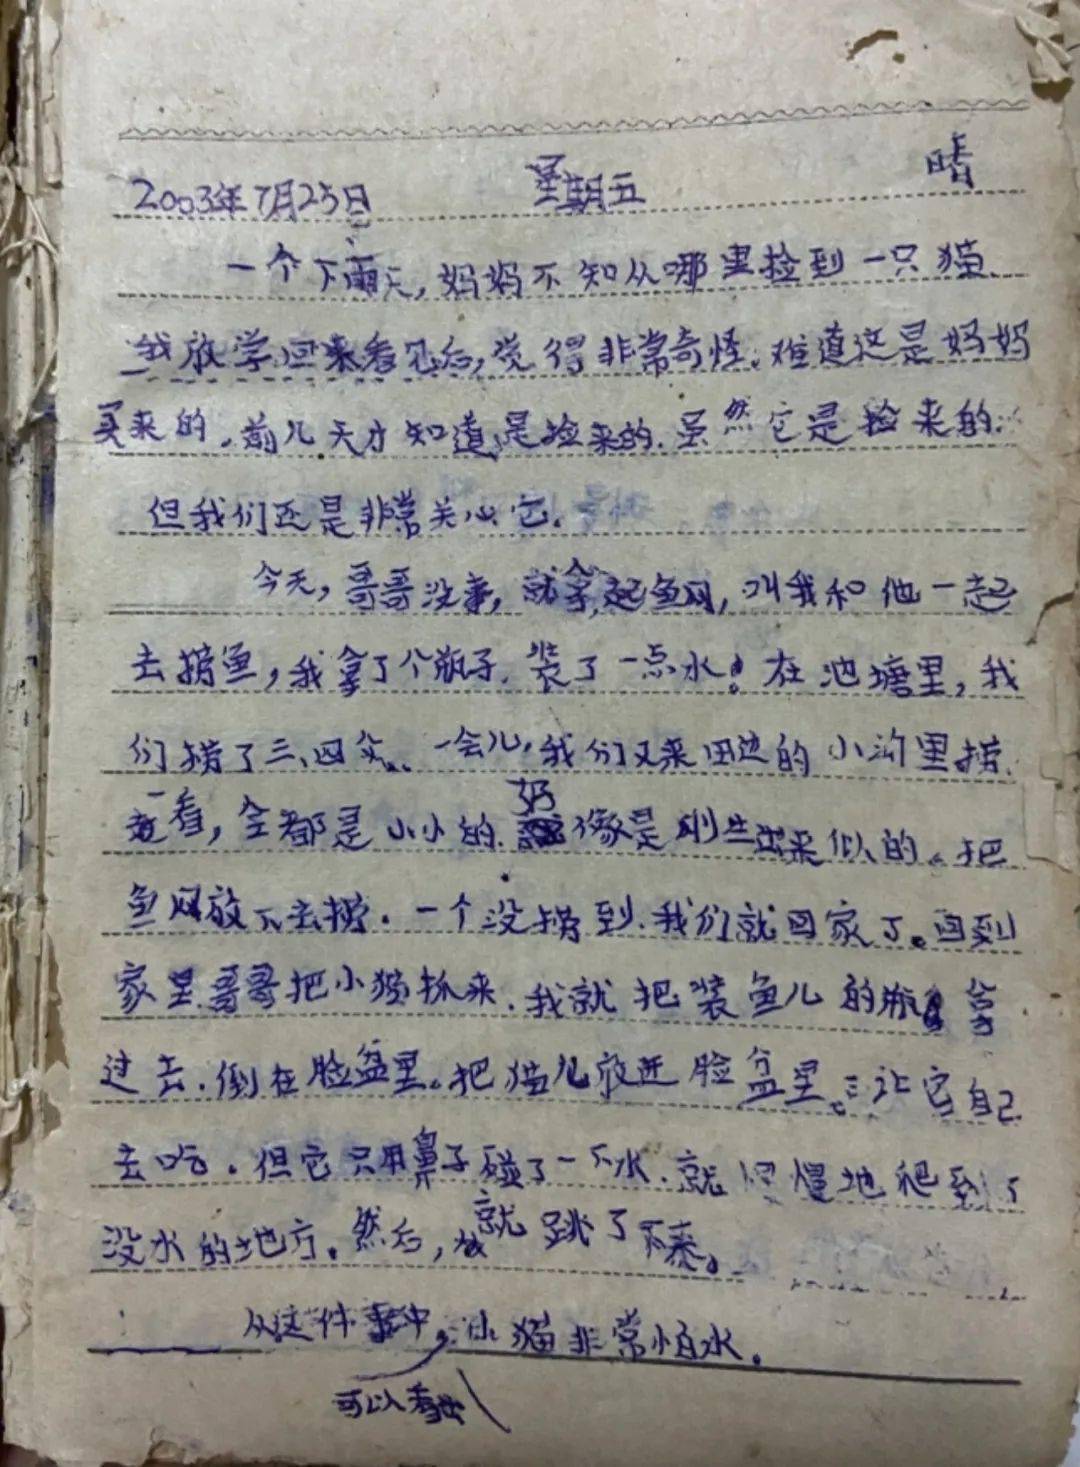 2003年7月25日 星期五 晴
一个下雨天,妈妈不知从哪里捡到一只猫.
我放学回来看见后,觉得非常奇怪.难道这是妈妈
买来的.前几天才知道,是捡来的.虽然它是捡来的.
但我们还是非常关心它.
今天,哥哥没事,就拿起鱼网,叫我和他一起
去捞鱼,我拿了个瓶子.装了一点水!在池塘里,我
们捞了三、四条.一会儿,我们又来田边的小沟里捞.
一看,全都是小小的.好像是刚生出来似的。把
鱼网放下去捞.一个没捞到.我们就回家了。回到
家里.哥哥把小猫抓来.我就把装鱼儿的瓶拿
过去.倒在脸盆里。把猫儿放进脸盆里。让它自己
去吃.但它只用鼻子碰了一下水.就慢慢地爬到了
没水的地方。然后,就跳了下来。
从这件事中,小猫非常怕水.
可以看出